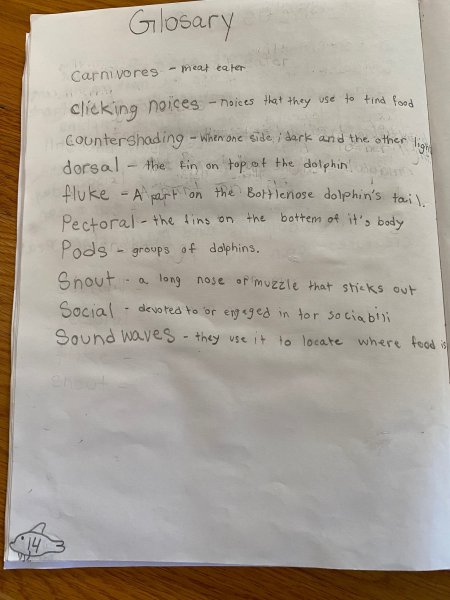 Glosary
Carnivores - meat eater
Clicking noices - noices that they use to find food
Countershading - when one side i dark and the other light
dorsal - the fin on top of the dolphin
fluke - A part on the Bottlenose dolphin's tail.
Pectoral - the fins on the bottem of it's body
Pods - groups of dolphins.
Snout - a long nose or muzzle that sticks out
Social - devoted to or engeged in for sociabili
Sound waves - they use it to locate where food is
snout -
14